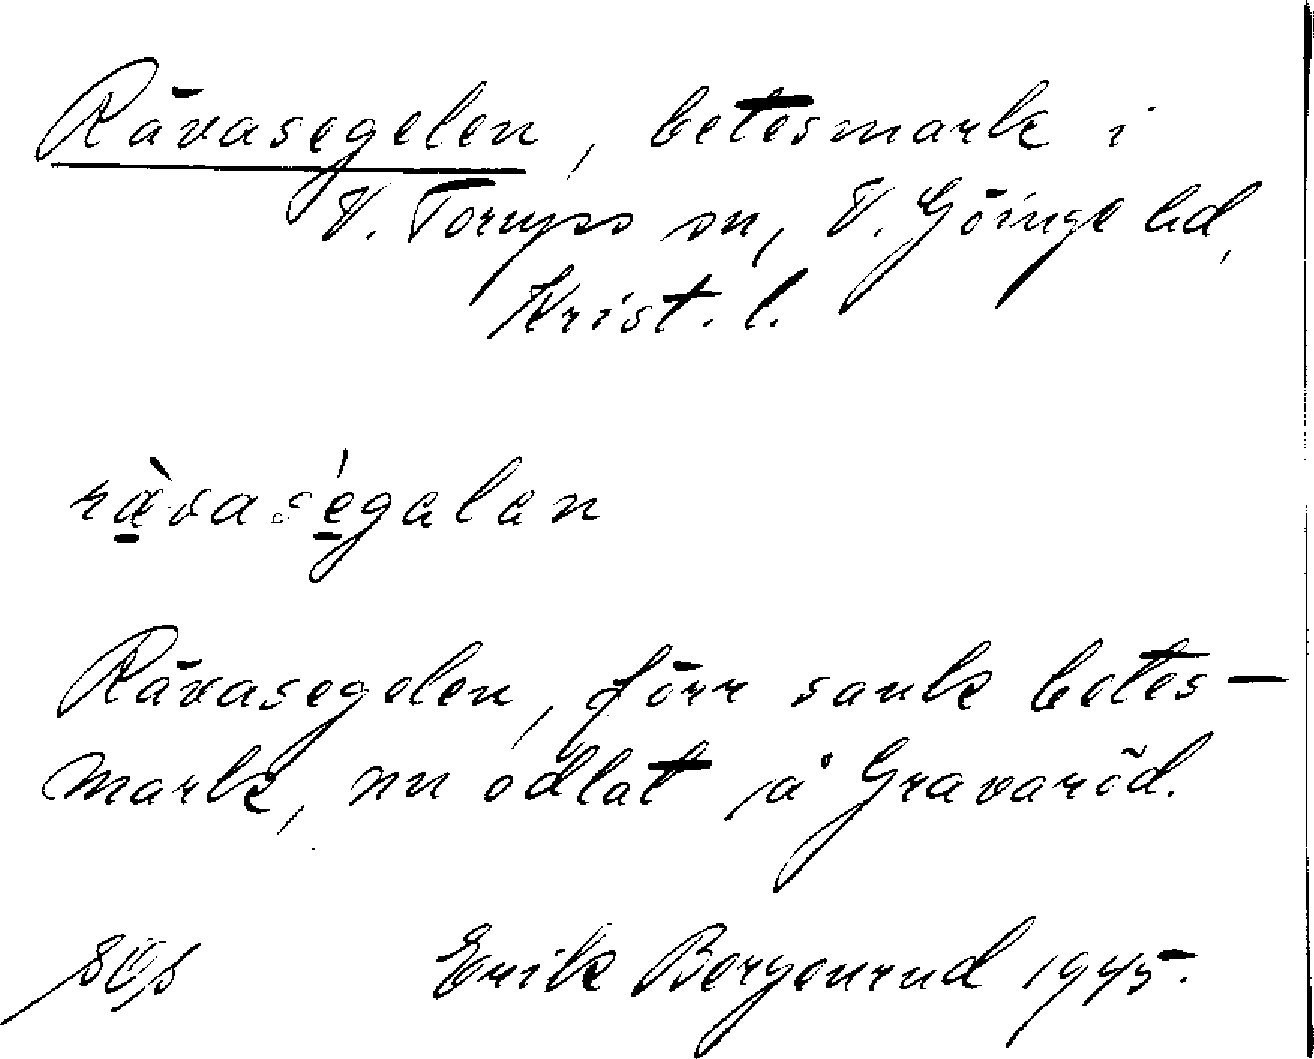 Rävasegelen, betesmark i
V. Torups sn, V. Göinge hd,
Krist. l.
rävaségalan
Rävasegelen, förr sank betes-
mark, nu odlat å Gravaröd.
Erik Bergenrud 1945.